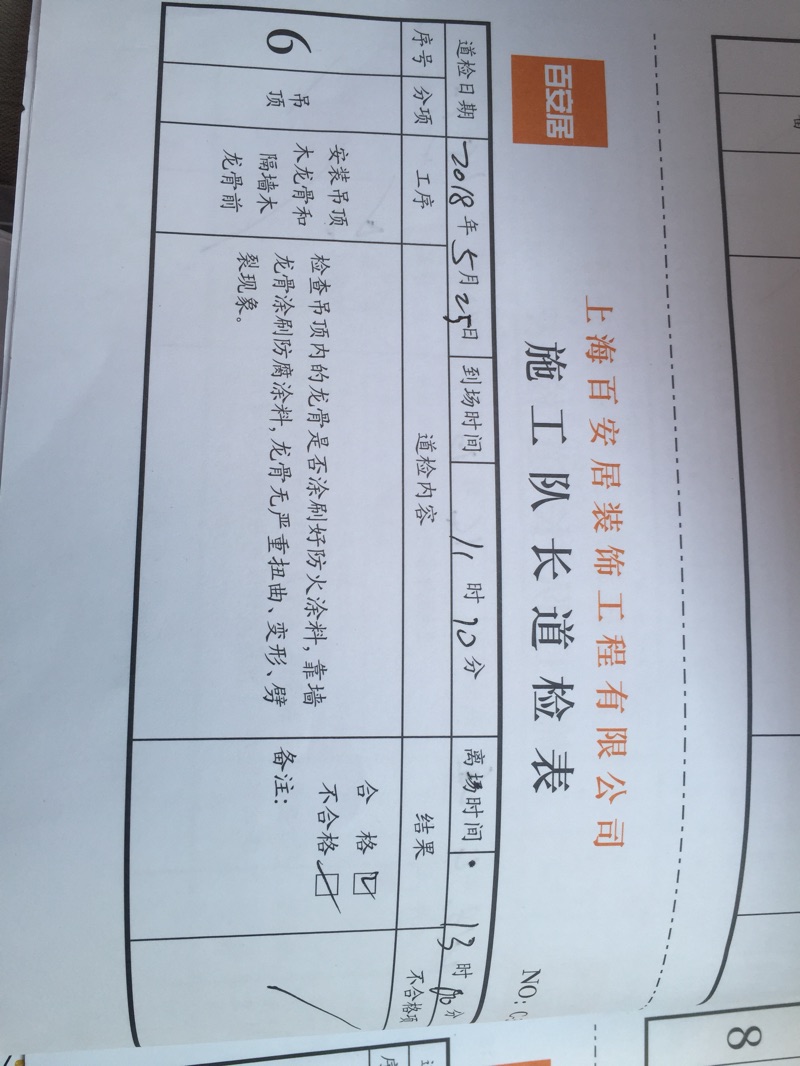 百安居
上海百安居装饰工程有限公司
施工队长道检表
NO:
道检日期 2018年5月25日 到场时间 11时10分 离场时间 13时00分
序号 分项 工序 道检内容 结果 不合格项
6
吊
顶
安装吊顶
木龙骨和
隔墙木
龙骨前
检查吊顶内的龙骨是否涂刷好防火涂料,靠墙
龙骨涂刷防腐涂料,龙骨无严重扭曲、变形、劈
裂现象。
合格
不合格
备注:
8